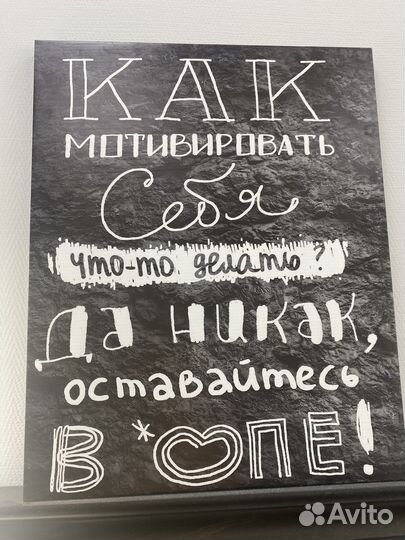 КАК
МОТИВИРОВАТЬ
Себя
что-то делать?
Да никак,
оставайтесь
В *ОПЕ!
Avito